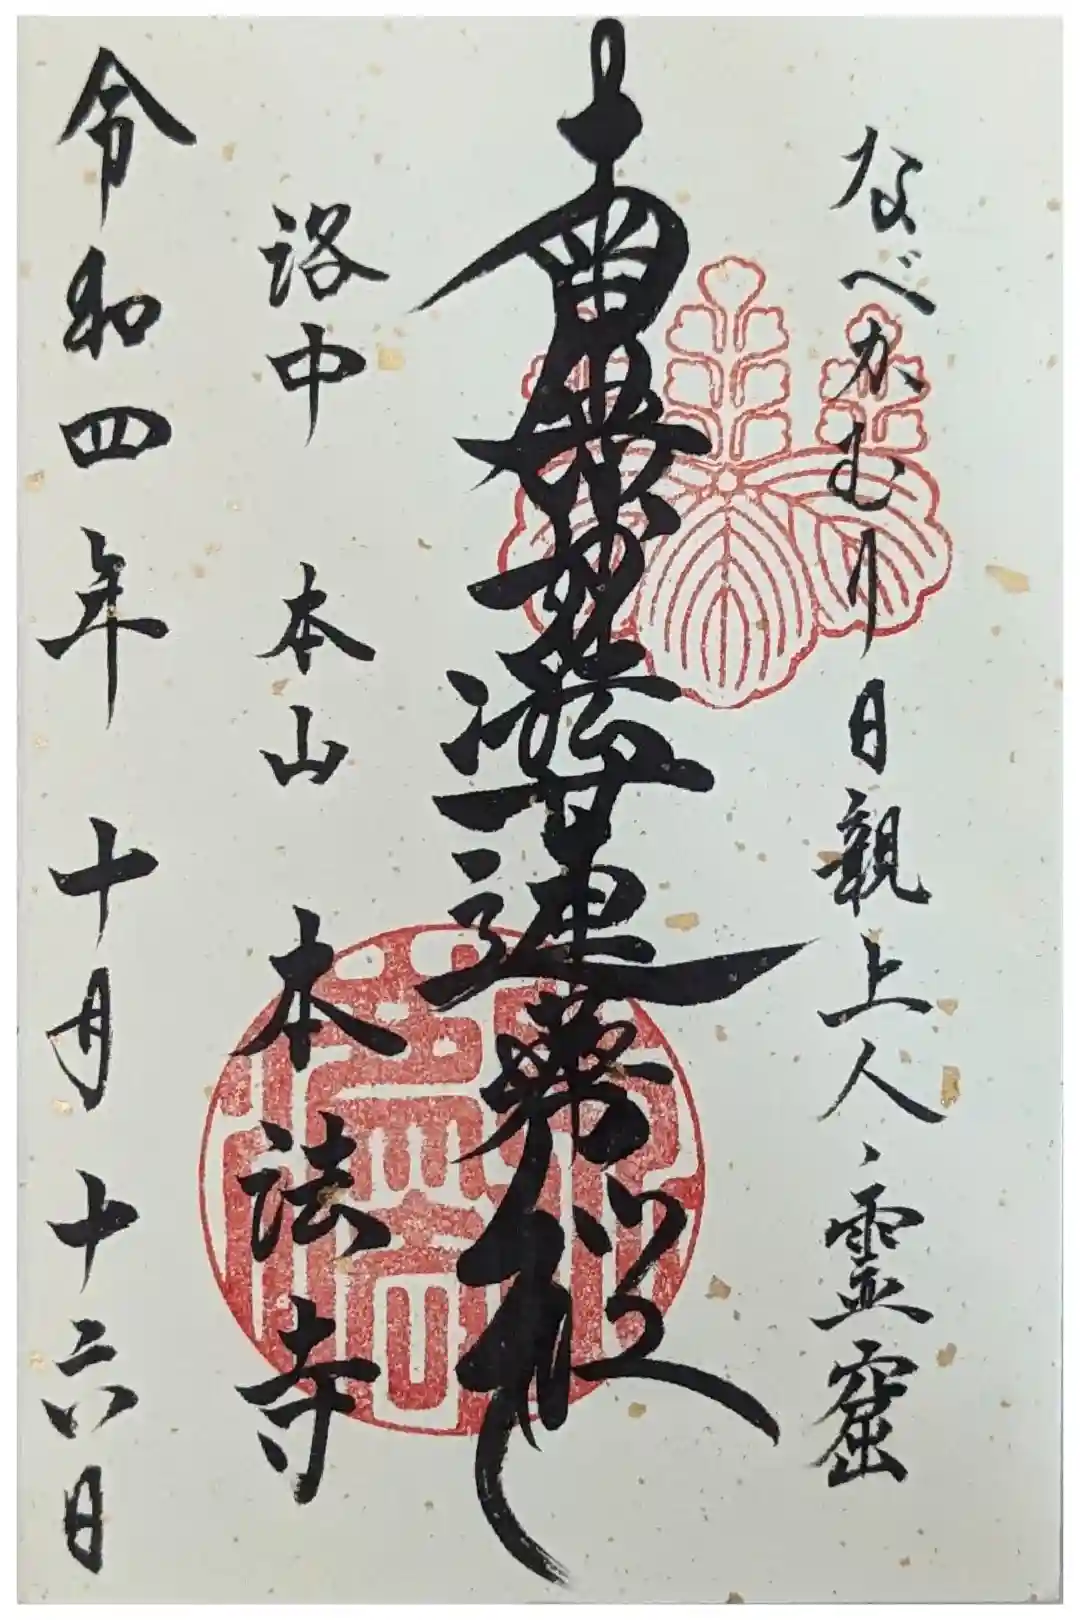 なべかむり日親上人霊窟
南無妙法蓮華経
洛中 本山 本法寺
令和四年 十月十六日